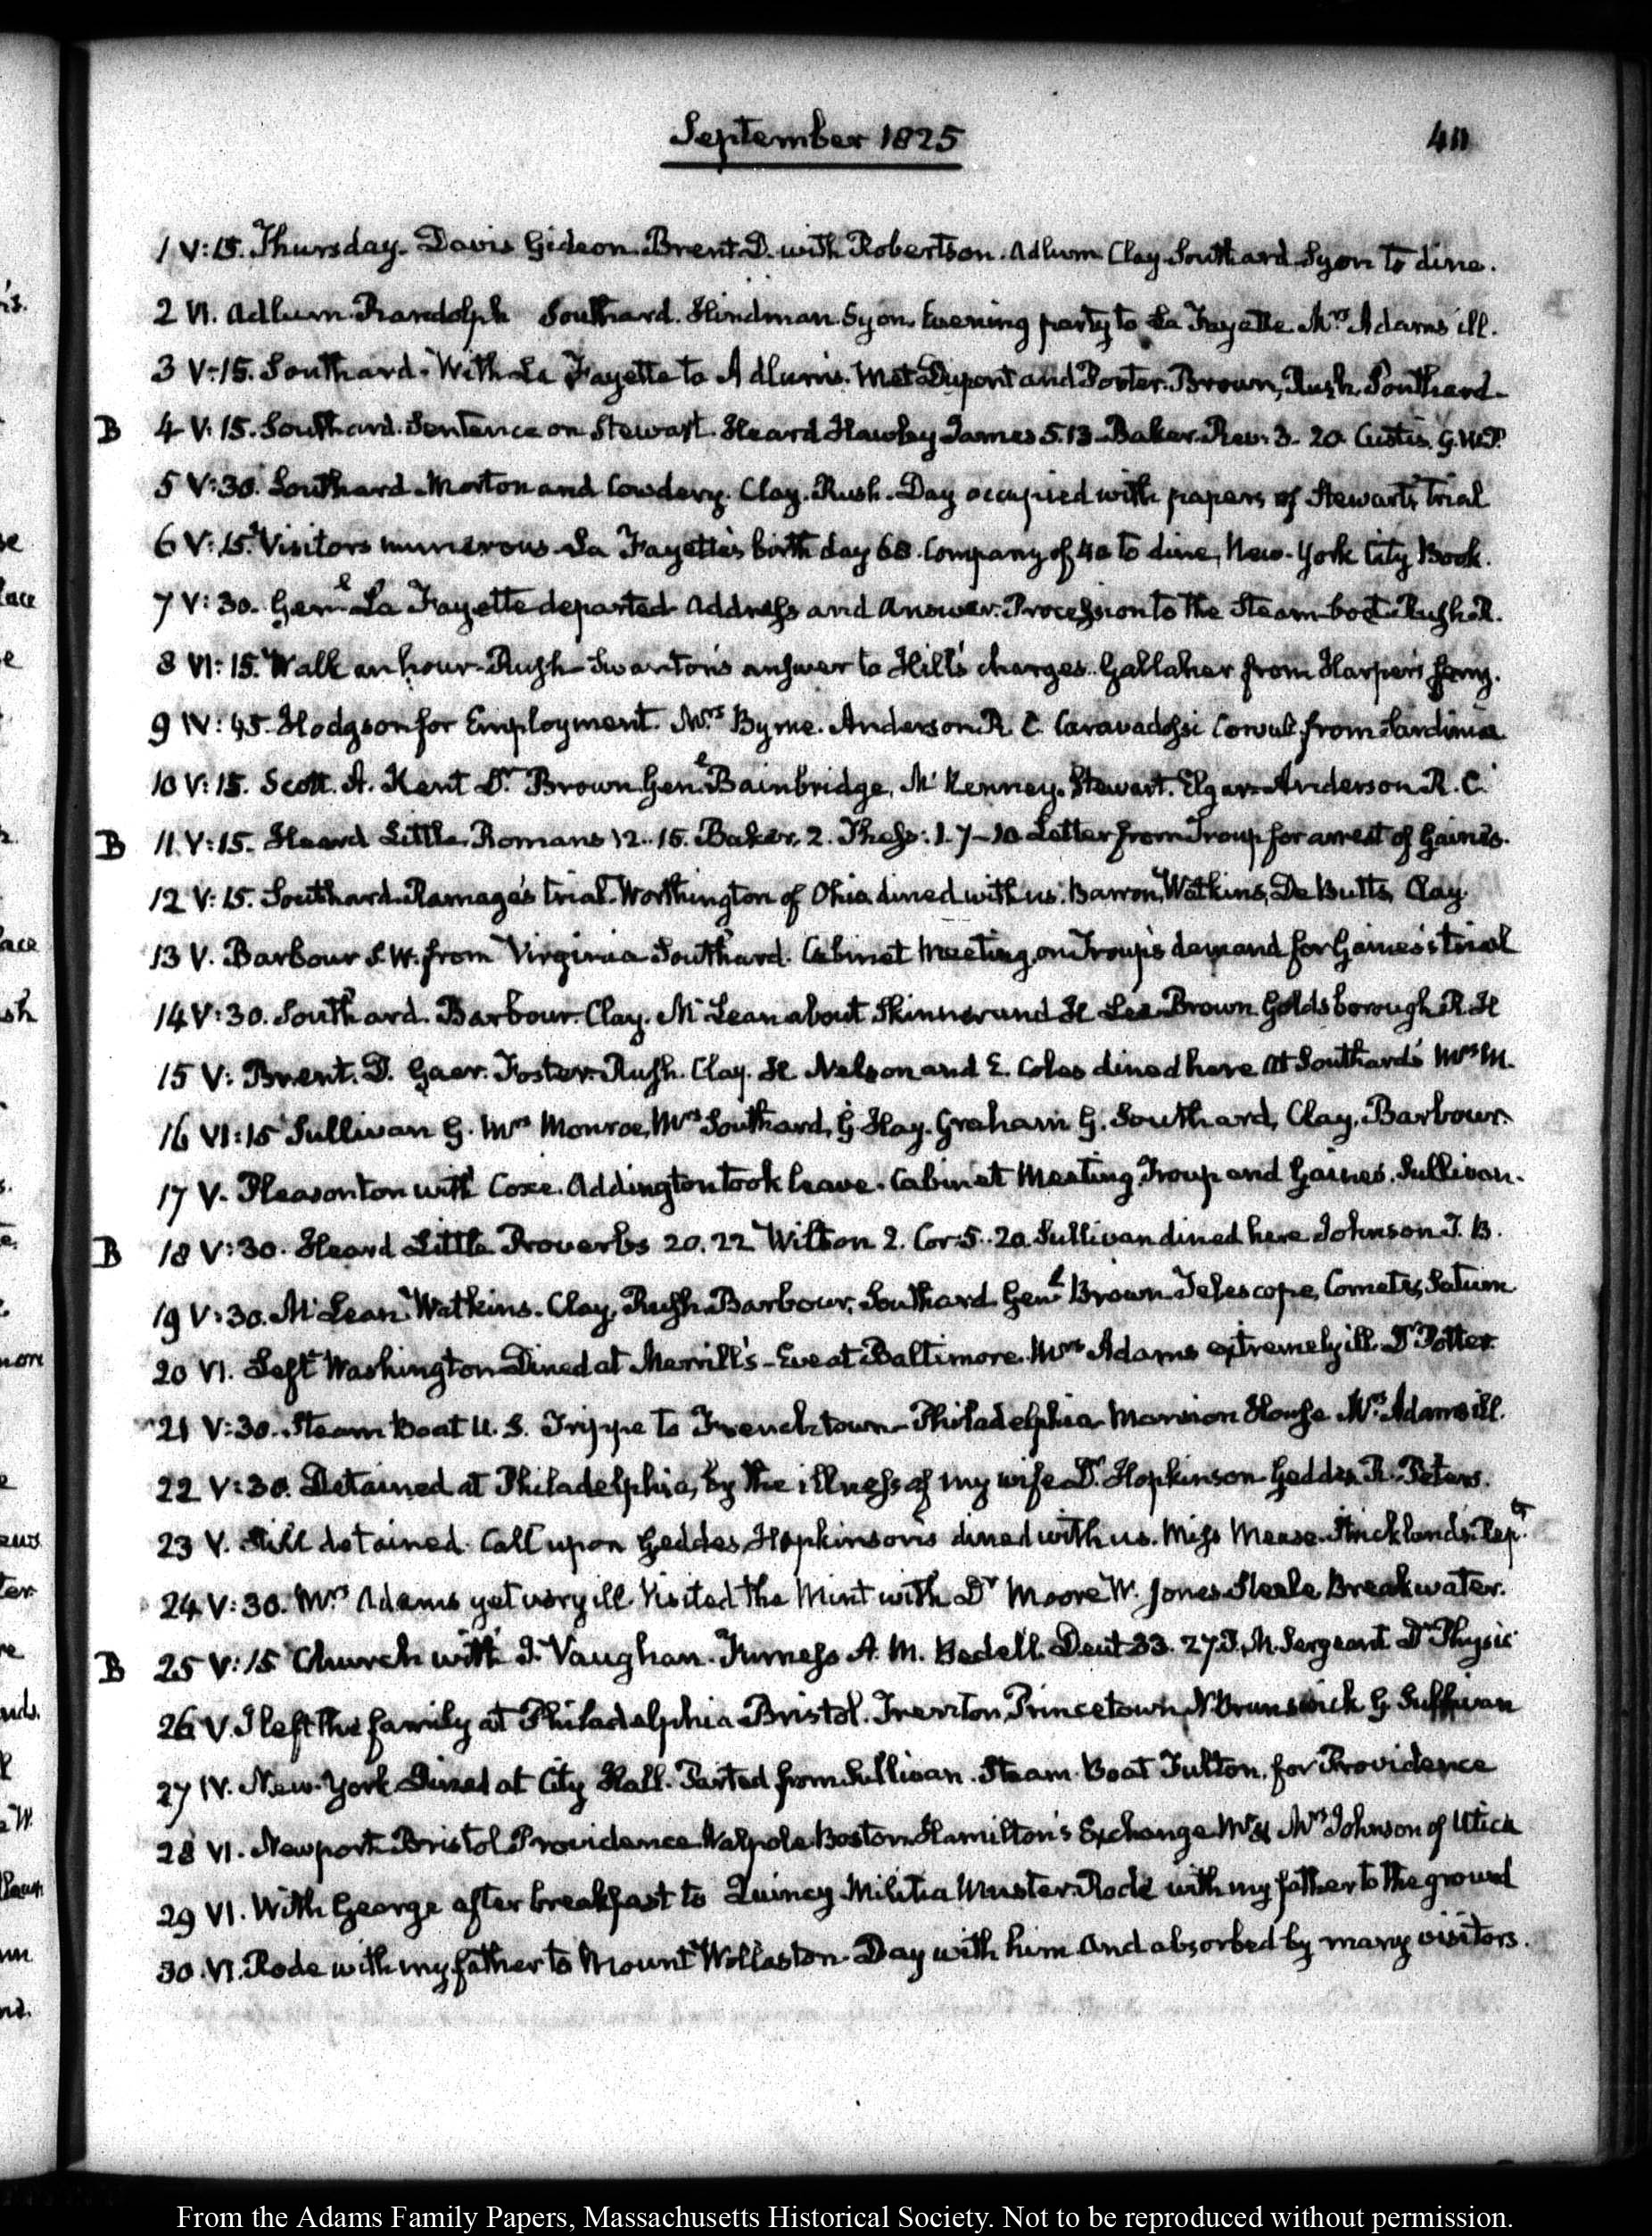 September 1825
411
1 V:15. Thursday. Davis Gideon. Brent D. with Robertson. Adlum Clay Southard Syon to dine.
2 VI. Adlum. Randolph Southard. Hindman. Syon. Evening party to La Fayette Mrs. Adams ill.
3 V:15. Southard. With La Fayette to Adlum's. Met Dupont and Foster. Brown, Rush. Southard.
B 4 V:15. Southard. Sentence on Stewart. Heard Hawley James 5.13. Baker. Rev: 3. 20. Custis. G.W.P.
5 V:30. Southard. Morton and Cowdery. Clay. Rush. Day occupied with papers of Stewart's trial
6 V:15. Visitors numerous La Fayette's birth day 68. Company of 40 to dine, New-York City Book.
7 V:30. Genl. La Fayette departed Address and Answer. Procession to the Steam-boat. Rush. R.
8 VI:15. Walk an hour. Rush Swanton's answer to Hill's charges. Gallaher from Harper's ferry.
9 IV:45. Hodgson for Employment. Mrs. Byrne. Anderson R. C. Caravadossi Consul from Sardinia
10 V:15. Scott. A. Kent Dr. Brown Genl. Bainbridge, McKenney. Stewart. Elgar. Anderson R. C.
B 11 V:15. Heard Little. Romans 12. 15. Baker. 2. Thess: 1. 7-10 Letter from Troup for arrest of Gaines.
12 V:15. Southard. Ramage's trial. Worthington of Ohio dined with us. Barron, Watkins, De Butts, Clay.
13 V. Barbour S.W. from Virginia Southard. Cabinet Meeting, on Troup's demand for Gaines's trial
14 V:30. Southard. Barbour. Clay. McLean about Skinner and H Lee. Brown Goldsborough R. H
15 V: Brent. D. Gaer. Foster. Rush. Clay. H Nelson and E. Coles dined here At Southard's Mrs M.
16 VI:15 Sullivan G. Mrs Monroe, Mrs Southard, G. Hay. Graham G. Southard, Clay, Barbour.
17 V. Pleasonton with Coxe. Addington took leave. Cabinet Meeting Troup and Gaines. Sullivan.
B 18 V:30. Heard Little Proverbs 20. 22 Wilson 2. Cor: 5. 20. Sullivan dined here Johnson J. B.
19 V:30. McLean Watkins. Clay, Rush. Barbour, Southard. Genl. Brown Telescope, Comets, Saturn
20 VI. Left Washington Dined at Merrill's - Eve at Baltimore. Mrs Adams extremely ill. Dr Potter.
21 V:30. Steam Boat U.S. Trippe to Frenchtown Philadelphia Mansion House Mrs. Adams ill.
22 V:30. Detained at Philadelphia, by the illness of my wife Dr. Hopkinson Geddes. R. Peters.
23 V. Still detained. Call upon Geddes, Hopkinson's dined with us. Miss Mease. Strickland's Rept.
24 V:30. Mrs Adams yet very ill. Visited the Mint with Dr Moore W. Jones Steele Breakwater.
B 25 V:15 Church with J. Vaughan. Furness A. M. Bedell. Deut 33. 27. J, M. Sergeant Dr Physic
26 V. I left the family at Philadelphia Bristol. Trenton, Princetown, N Brunswick G. Sullivan
27 IV. New-York Dined at City Hall. Parted from Sullivan. Steam-Boat Fulton, for Providence
28 VI. Newport. Bristol Providence Walpole Boston Hamilton's Exchange Mr & Mrs Johnson of Utica
29 VI. With George after breakfast to Quincy Militia Muster. Rode with my father to the ground
30. VI. Rode with my father to Mount Wollaston. Day with him And absorbed by many visitors.
From the Adams Family Papers, Massachusetts Historical Society. Not to be reproduced without permission.